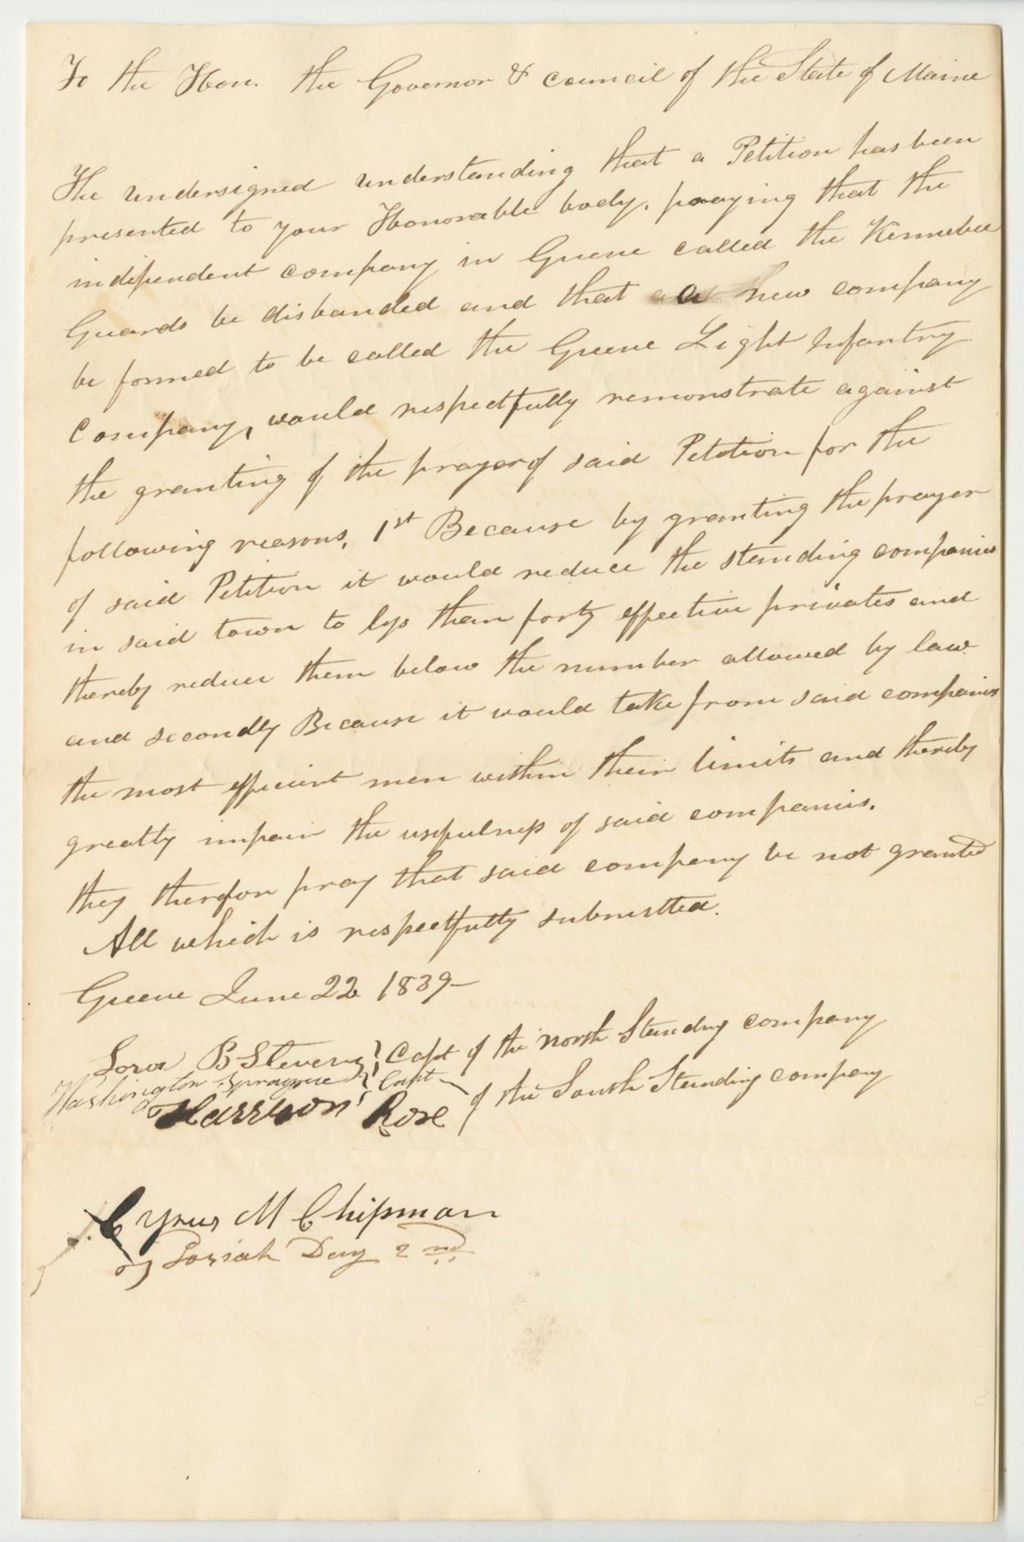 To the Hon. the Governor & Council of the State of Maine
The undersigned understanding that a Petition has been
presented to your Honorable body, praying that the
independent company in Greene called the Kennebec
Guards be disbanded and that a new company
be formed to be called the Greene Light Infantry
Company, would respectfully remonstrate against
the granting of the prayer of said Petition for the
following reasons, 1st Because by granting the prayer
of said Petition it would reduce the standing companies
in said town to less than forty effective privates and
thereby reduce them below the number allowed by law
and secondly Because it would take from said companies
the most efficient men within their limits and thereby
greatly impair the usefulness of said companies.
they therefore pray that said company be not granted
All which is respectfully submitted.
Greene June 22 1839—
B Stevens } Capt of the North Standing company
Washington Sprague } Capt
Harrison Rose of the South Standing company
Cyrus M Chipman
Josiah Day 2nd